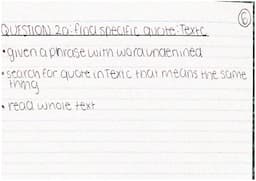 6
QUESTION 2a: find specific quote: Text C
• given a phrase with word underlined
• search for quote in Text C that means the same
thing
• read whole text